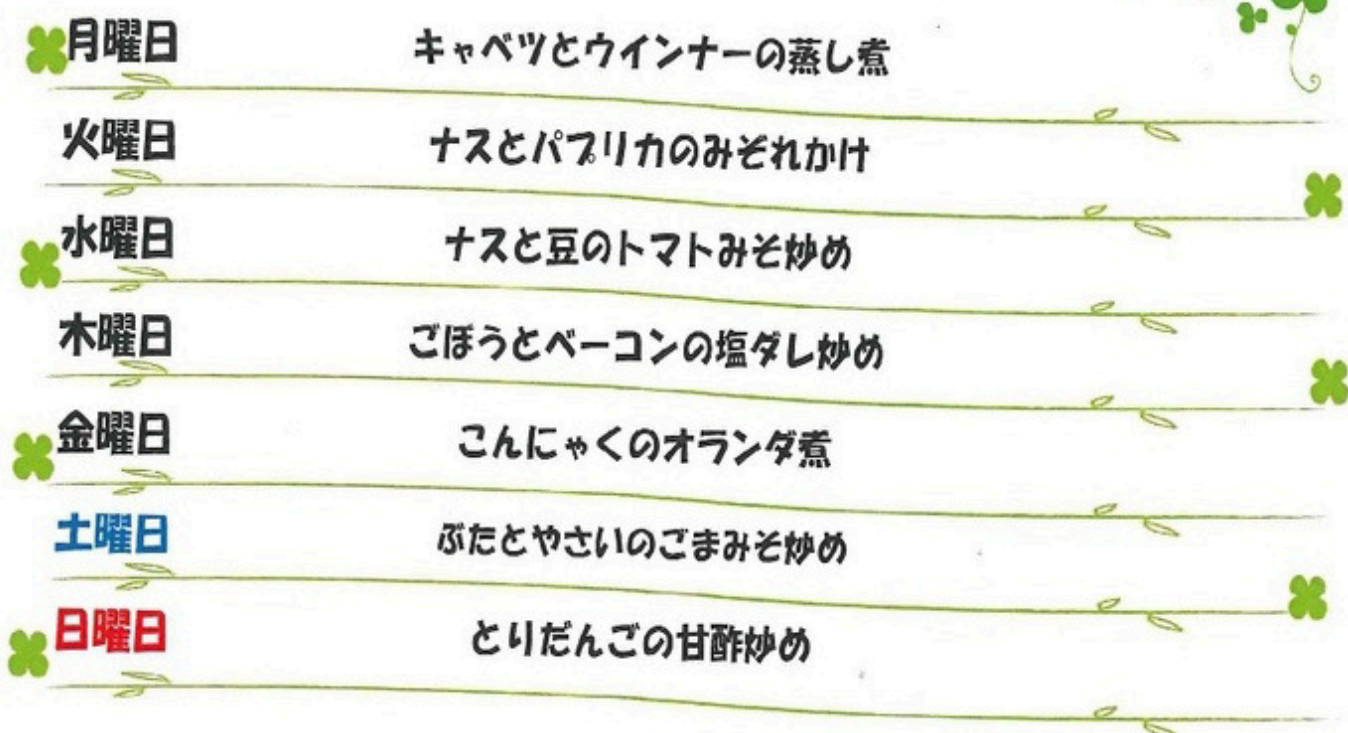 月曜日 キャベツとウインナーの蒸し煮
火曜日 ナスとパプリカのみぞれかけ
水曜日 ナスと豆のトマトみそ炒め
木曜日 ごぼうとベーコンの塩ダレ炒め
金曜日 こんにゃくのオランダ煮
土曜日 ぶたとやさいのごまみそ炒め
日曜日 とりだんごの甘酢炒め